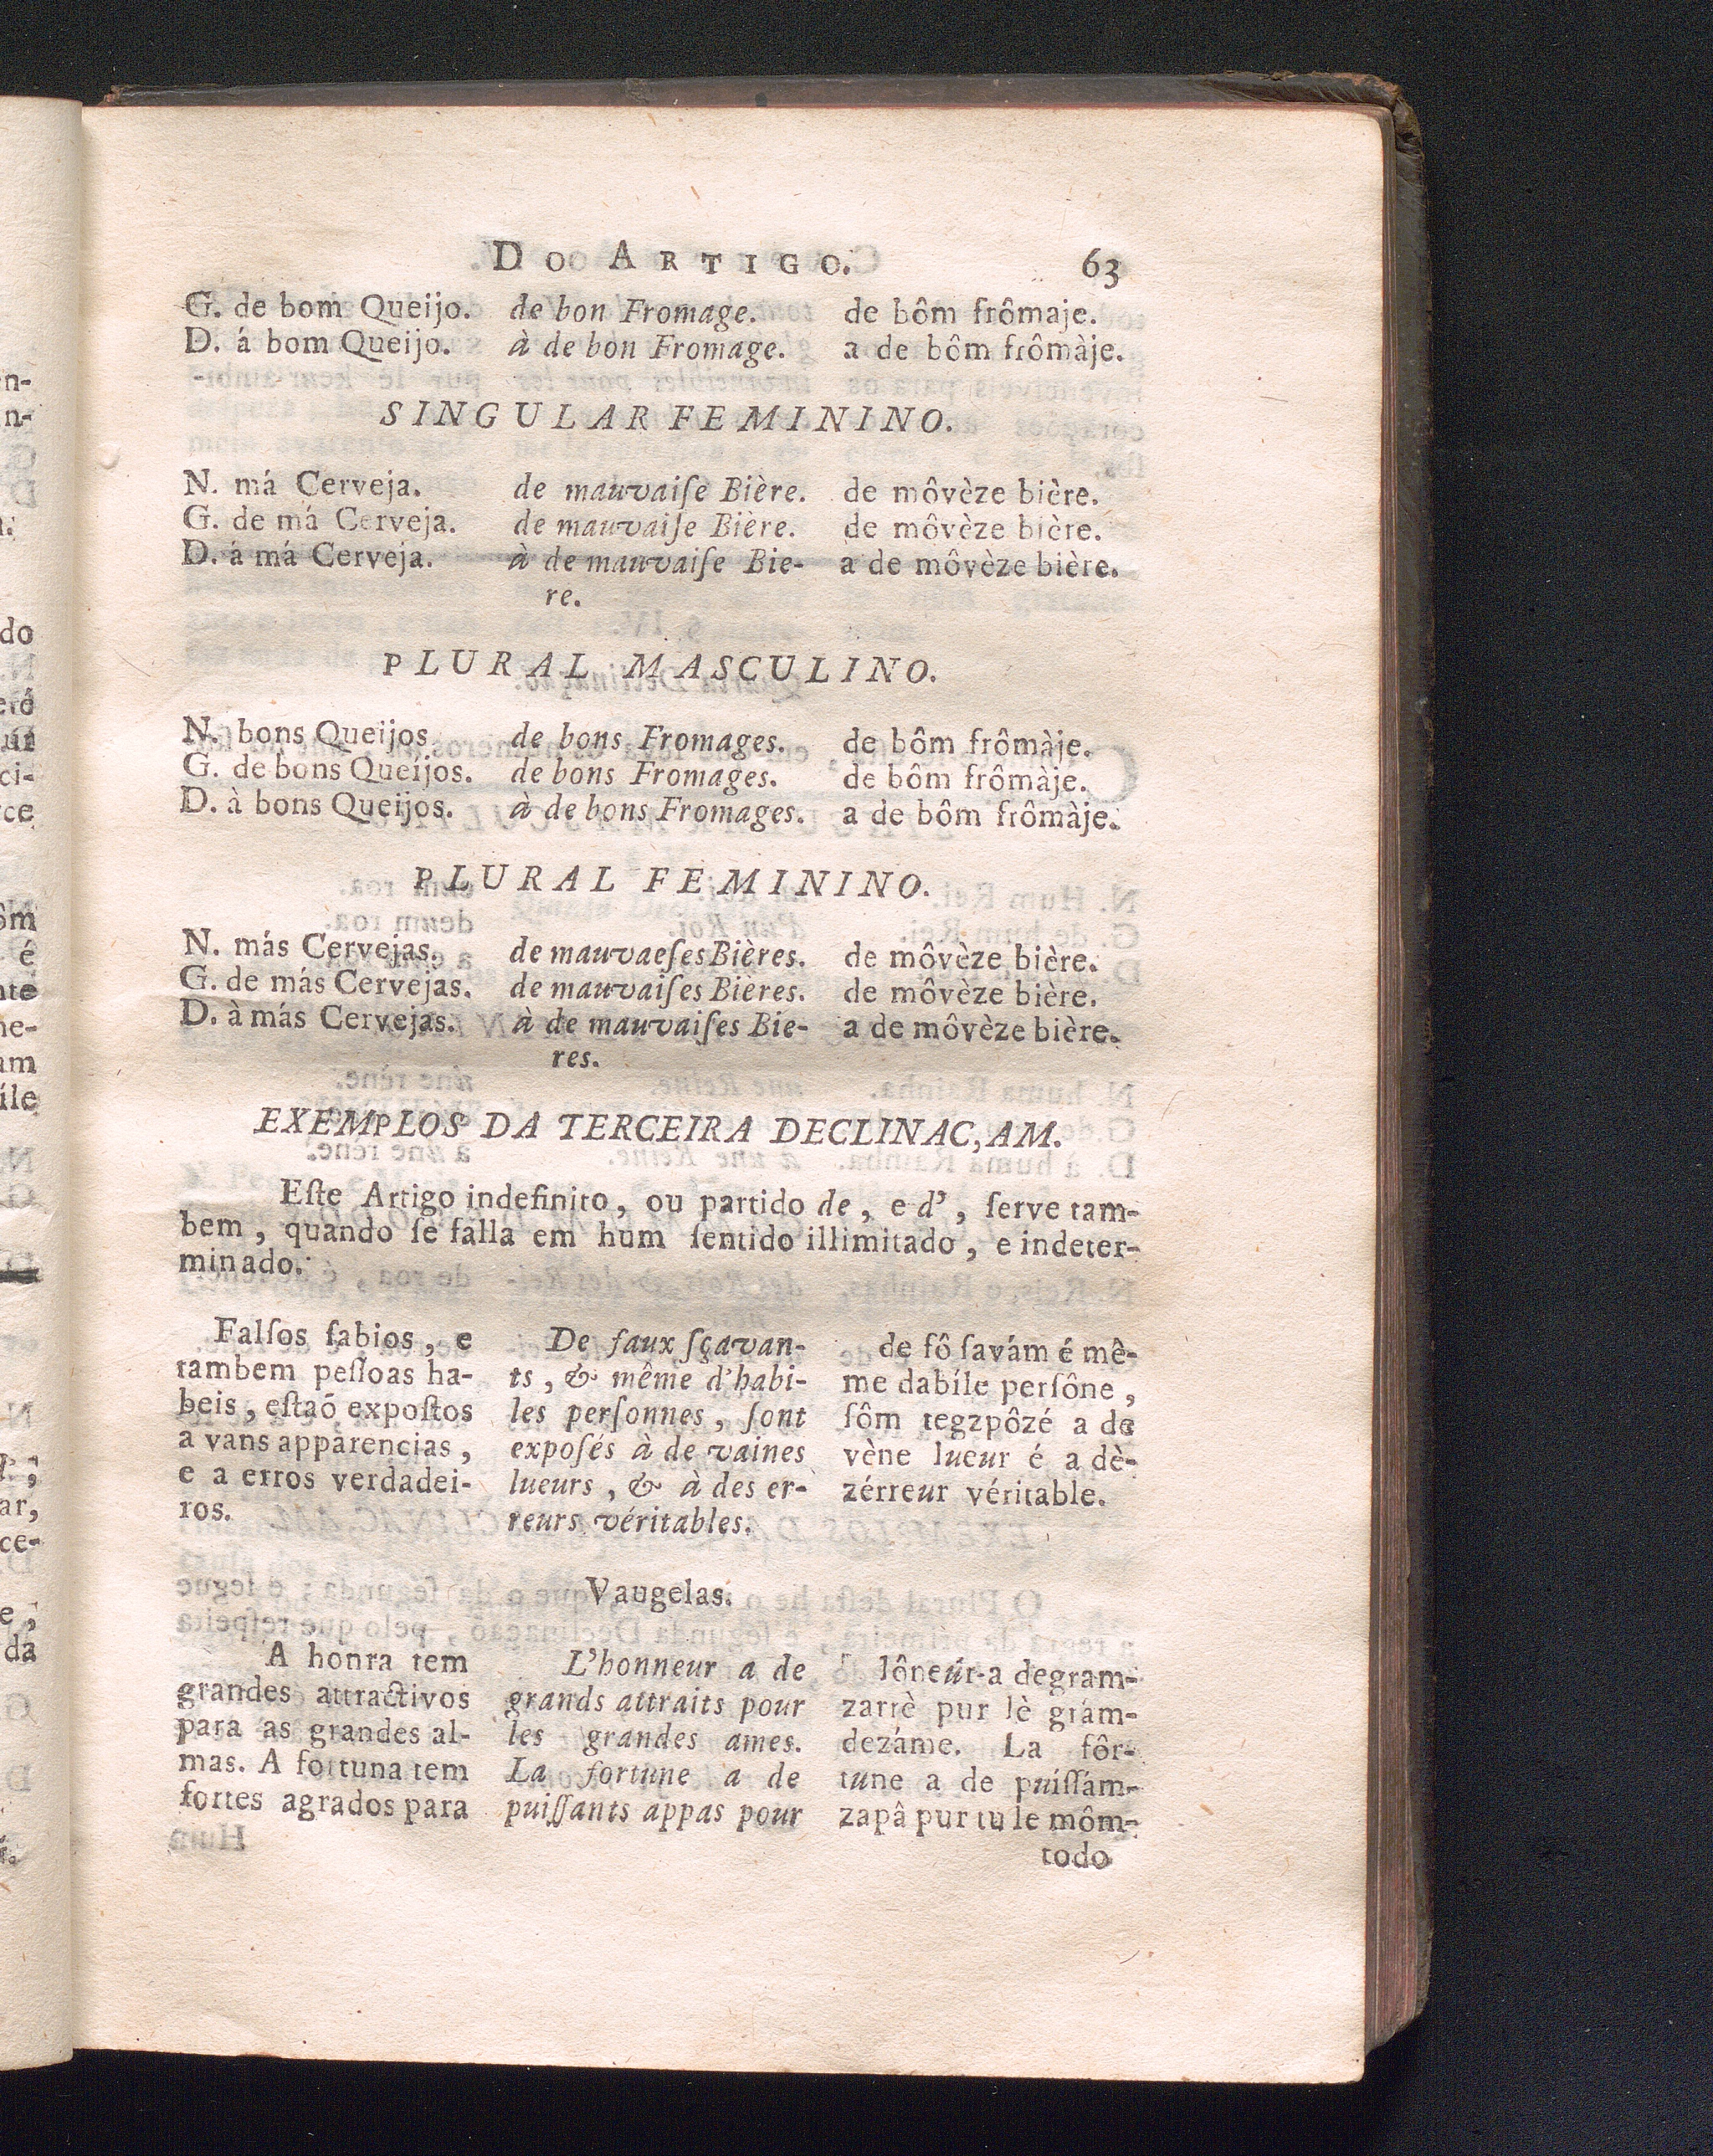 DO ARTIGO. 63
G. de bom Queijo. de bon Fromage. de bôm frômaje.
D. á bom Queijo. à de bon Fromage. a de bôm frômàje.
SINGULAR FEMININO.
N. má Cerveja. de mauvaiſe Bière. de môvèze bière.
G. de má Cerveja. de mauvaiſe Bière. de môvèze bière.
D. á má Cerveja. à de mauvaiſe Bie- a de môvèze bière.
re.
PLURAL MASCULINO.
N. bons Queijos. de bons Fromages. de bôm frômàje.
G. de bons Queijos. de bons Fromages. de bôm frômàje.
D. à bons Queijos. à de bons Fromages. a de bôm frômàje.
PLURAL FEMININO.
N. más Cervejas. de mauvaeſes Bières. de môvèze bière.
G. de más Cervejas. de mauvaiſes Bières. de môvèze bière.
D. à más Cervejas. à de mauvaiſes Bie- a de môvèze bière.
res.
EXEMPLOS DA TERCEIRA DECLINAC,AM.
Eſte Artigo indefinito, ou partido de, e d', ſerve tam-
bem, quando ſe falla em hum ſentido illimitado, e indeter-
minado.
Falſos ſabios, e
tambem peſſoas ha-
beis, eſtaõ expoſtos
a vans apparencias,
e a erros verdadei-
ros.
De faux ſçavan-
ts, & même d'habi-
les perſonnes, ſont
expoſés à de vaines
lueurs, & à des er-
reurs véritables.
de fô ſavám é mê-
me dabíle perſône,
ſôm tegzpôzé a de
vène lueur é a dè-
zérreur véritable.
Vaugelas.
A honra tem
grandes attractivos
para as grandes al-
mas. A fortuna tem
fortes agrados para
L'honneur a de
grands attraits pour
les grandes ames.
La fortune a de
puiſſants appas pour
lôneúr-a degram-
zarrè pur lè grám-
dezáme. La fôr-
tune a de puíſſám-
zapâ pur tu le môm-
todo